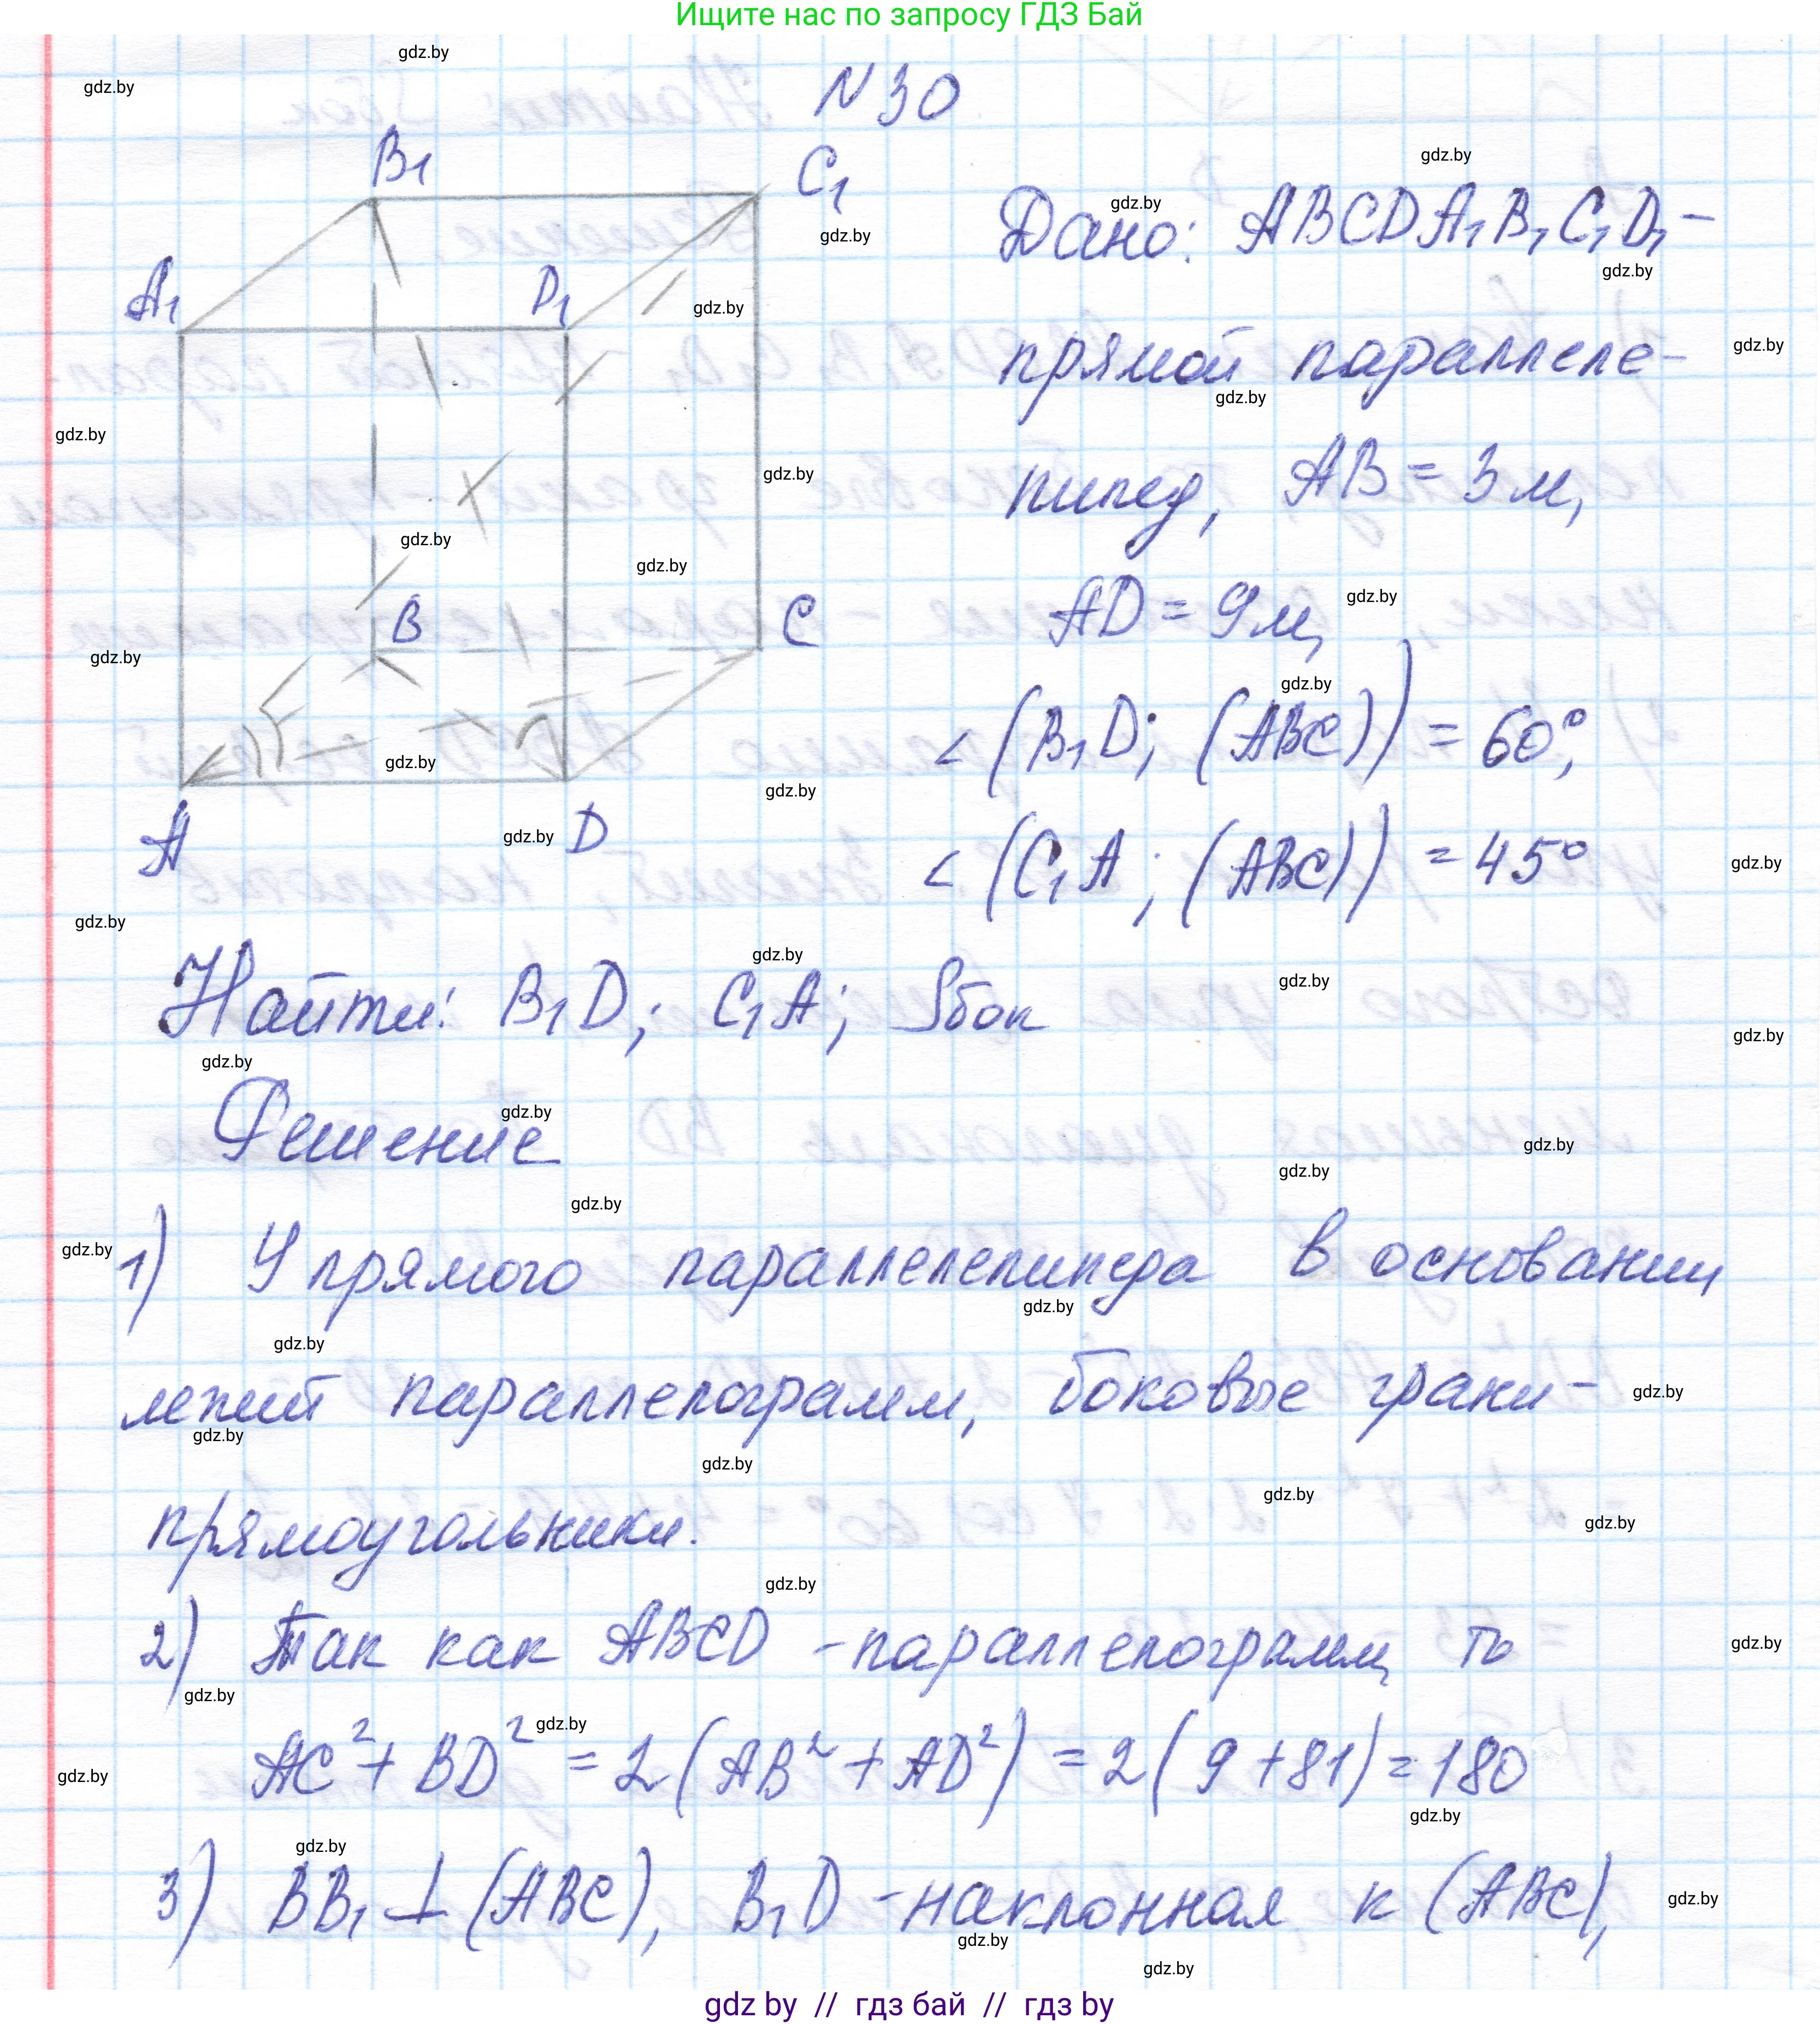 Ищите нас по запросу ГДЗ Бай
N 30
B₁
C₁
A₁
D₁
B
C
A
D
Дано: ABCDA₁B₁C₁D₁ –
прямой параллеле-
пипед, AB = 3 м,
AD = 9 м,
∠(B₁D; (ABC)) = 60°;
∠(C₁A; (ABC)) = 45°
Найти: B₁D; C₁A; Sбок
Решение
1) У прямого параллелепипеда в основании
лежит параллелограмм, боковые грани –
прямоугольники.
2) Так как ABCD – параллелограмм, то
AC² + BD² = 2(AB² + AD²) = 2(9 + 81) = 180
3) BB₁ ⊥ (ABC), B₁D – наклонная к (ABC),
gdz by // гдз бай // гдз by